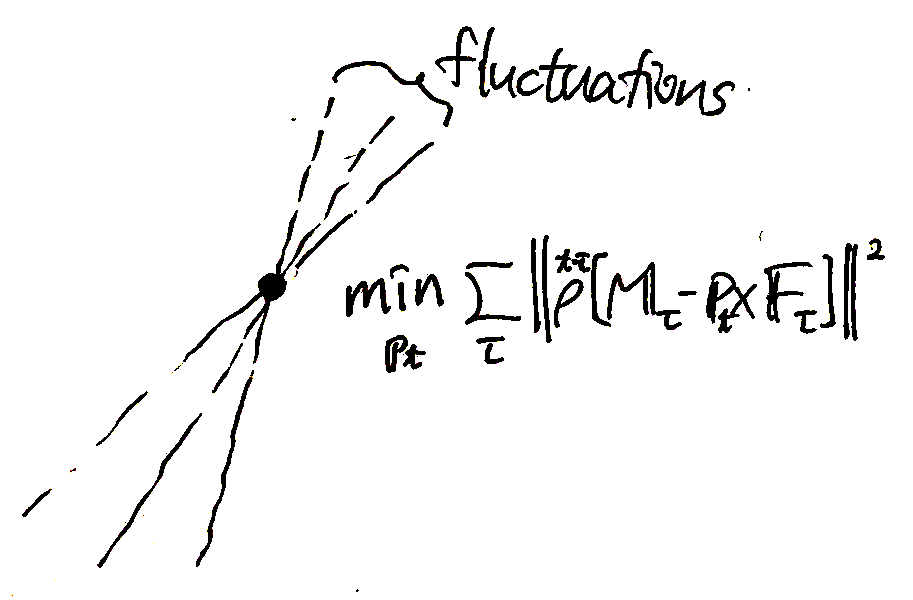 fluctuations
min_{ℙ_t} Σ_τ ‖ρ^{t-τ}[𝕄_τ - ℙ_t × 𝔽_τ]‖²